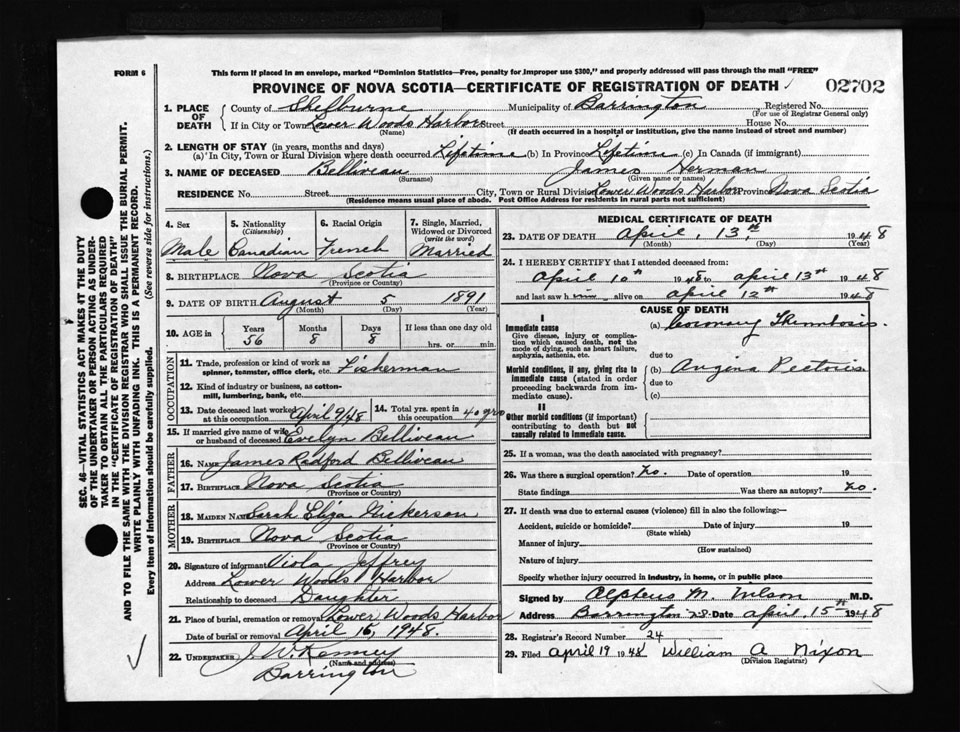 FORM 6
This form if placed in an envelope, marked "Dominion Statistics—Free, penalty for improper use $300," and properly addressed will pass through the mail "FREE"
PROVINCE OF NOVA SCOTIA—CERTIFICATE OF REGISTRATION OF DEATH
02702
1. PLACE OF DEATH
County of Shelburne Municipality of Barrington Registered No.
(For use of Registrar General only)
If in City or Town Lower Woods Harbor Street House No.
(Name) (If death occurred in a hospital or institution, give the name instead of street and number)
2. LENGTH OF STAY (in years, months and days)
(a) In City, Town or Rural Division where death occurred Lifetime (b) In Province Lifetime (c) In Canada (if immigrant)
3. NAME OF DECEASED Belliveau James Herman
(Surname) (Given name or names)
RESIDENCE No. Street City, Town or Rural Division Lower Woods Harbor Province Nova Scotia
(Residence means usual place of abode. Post Office Address for residents in rural parts not sufficient)
4. Sex
Male
5. Nationality
(Citizenship)
Canadian
6. Racial Origin
French
7. Single, Married, Widowed or Divorced
(write the word)
Married
8. BIRTHPLACE Nova Scotia
(Province or Country)
9. DATE OF BIRTH August 5 1891
(Month) (Day) (Year)
10. AGE in
Years 56
Months 8
Days 8
If less than one day old
hrs. or min.
OCCUPATION
11. Trade, profession or kind of work as spinner, teamster, office clerk, etc. Fisherman
12. Kind of industry or business, as cotton-mill, lumbering, bank, etc.
13. Date deceased last worked at this occupation April 9/48
14. Total yrs. spent in this occupation 40 yrs
15. If married give name of wife or husband of deceased Evelyn Belliveau
FATHER
16. NAME James Radford Belliveau
17. BIRTHPLACE Nova Scotia
(Province or Country)
MOTHER
18. MAIDEN NAME Sarah Eliza Nickerson
19. BIRTHPLACE Nova Scotia
(Province or Country)
20. Signature of informant Viola Jeffrey
Address Lower Woods Harbor
Relationship to deceased Daughter
21. Place of burial, cremation or removal Lower Woods Harbor
Date of burial or removal April 15, 1948.
22. UNDERTAKER J. W. Kenney
(Name and address)
Barrington
MEDICAL CERTIFICATE OF DEATH
23. DATE OF DEATH April, 13th 1948
(Month) (Day) (Year)
24. I HEREBY CERTIFY that I attended deceased from:
April 10th 1948 to April 13th 1948
and last saw him alive on April 12th 1948
CAUSE OF DEATH
I
Immediate cause
Give disease, injury or complication which caused death, not the mode of dying, such as heart failure, asphyxia, asthenia, etc.
(a) Coronary Thrombosis.
due to
Morbid conditions, if any, giving rise to immediate cause (stated in order proceeding backwards from immediate cause).
(b) Angina Pectoris
due to
(c)
II
Other morbid conditions (if important) contributing to death but not causally related to immediate cause.
25. If a woman, was the death associated with pregnancy?
26. Was there a surgical operation? No. Date of operation 19
State findings Was there an autopsy? No.
27. If death was due to external causes (violence) fill in also the following:—
Accident, suicide or homicide? Date of injury 19
(State which)
Manner of injury
(How sustained)
Nature of injury
Specify whether injury occurred in industry, in home, or in public place
Signed by Alpheus M. Wilson M.D.
Address Barrington N.S. Date April, 15th 1948
28. Registrar's Record Number 24
29. Filed April 19 1948 William A Nixon
(Division Registrar)
SEC. 46—VITAL STATISTICS ACT MAKES IT THE DUTY
OF THE UNDERTAKER OR PERSON ACTING AS UNDER-
TAKER TO OBTAIN ALL THE PARTICULARS REQUIRED
IN THE "CERTIFICATE OF REGISTRATION OF DEATH"
AND TO FILE THE SAME WITH THE DIVISION REGISTRAR WHO SHALL ISSUE THE BURIAL PERMIT.
WRITE PLAINLY WITH UNFADING INK. THIS IS A PERMANENT RECORD.
Every item of Information should be carefully supplied. (See reverse side for instructions.)